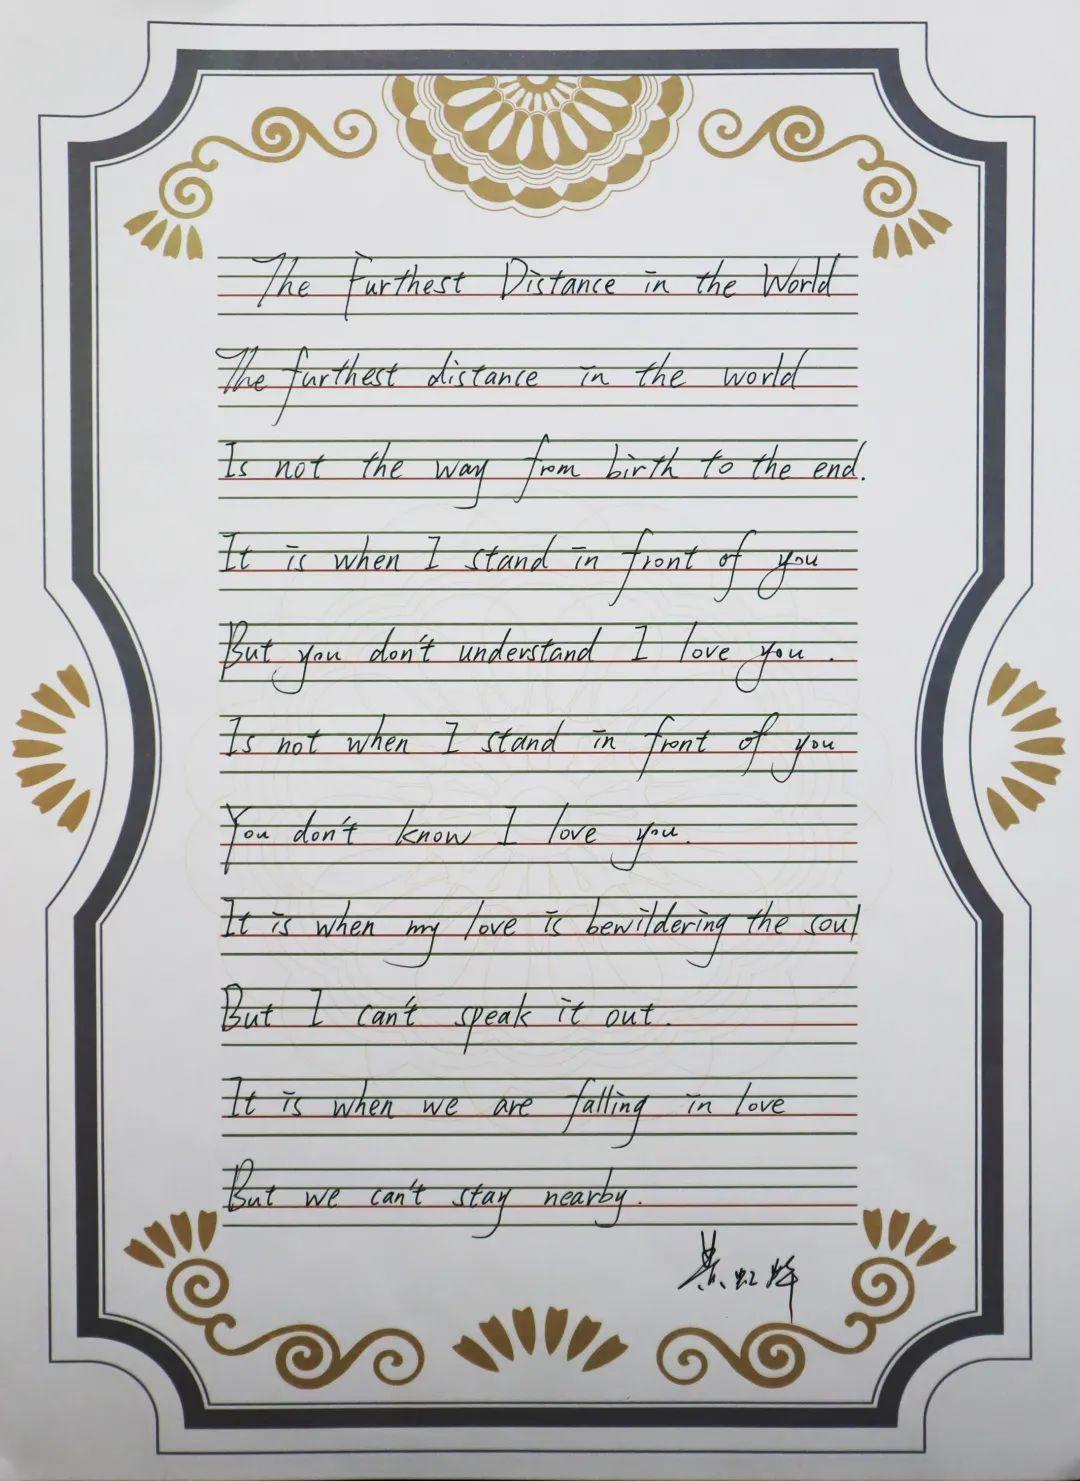 The Furthest Distance in the World
The furthest distance in the world
Is not the way from birth to the end.
It is when I stand in front of you
But you don't understand I love you.
Is not when I stand in front of you
You don't know I love you.
It is when my love is bewildering the soul
But I can't speak it out.
It is when we are falling in love
But we can't stay nearby.